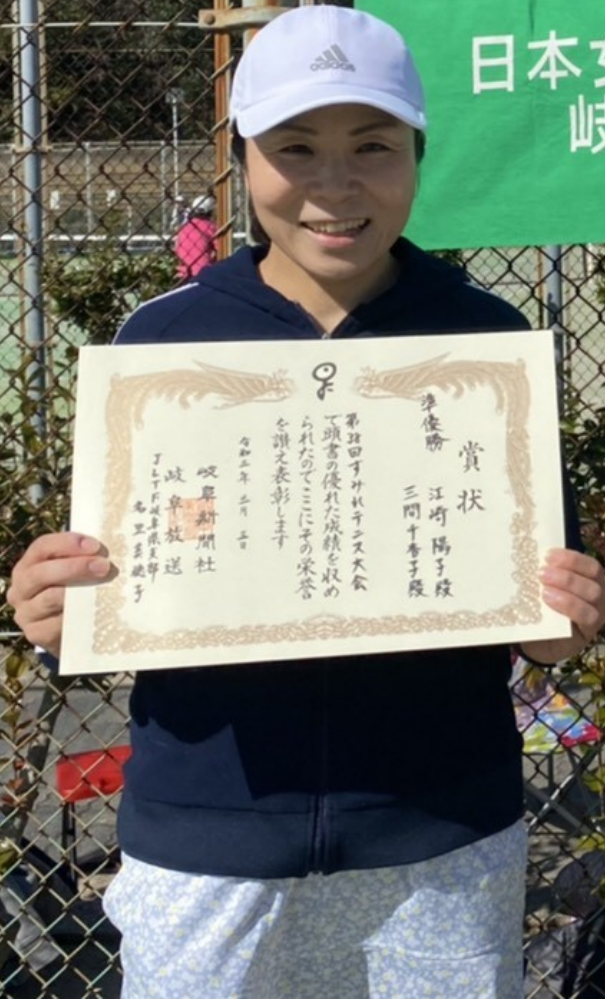 adidas
日本女
岐
賞状
準優勝
江崎陽子殿
三間千香子殿
第38回すみれテニス大会
で頭書の優れた成績を収め
られたのでここにその栄誉
を讃え表彰します
令和三年三月三日
岐阜新聞社
岐阜放送
JLTF岐阜県支部